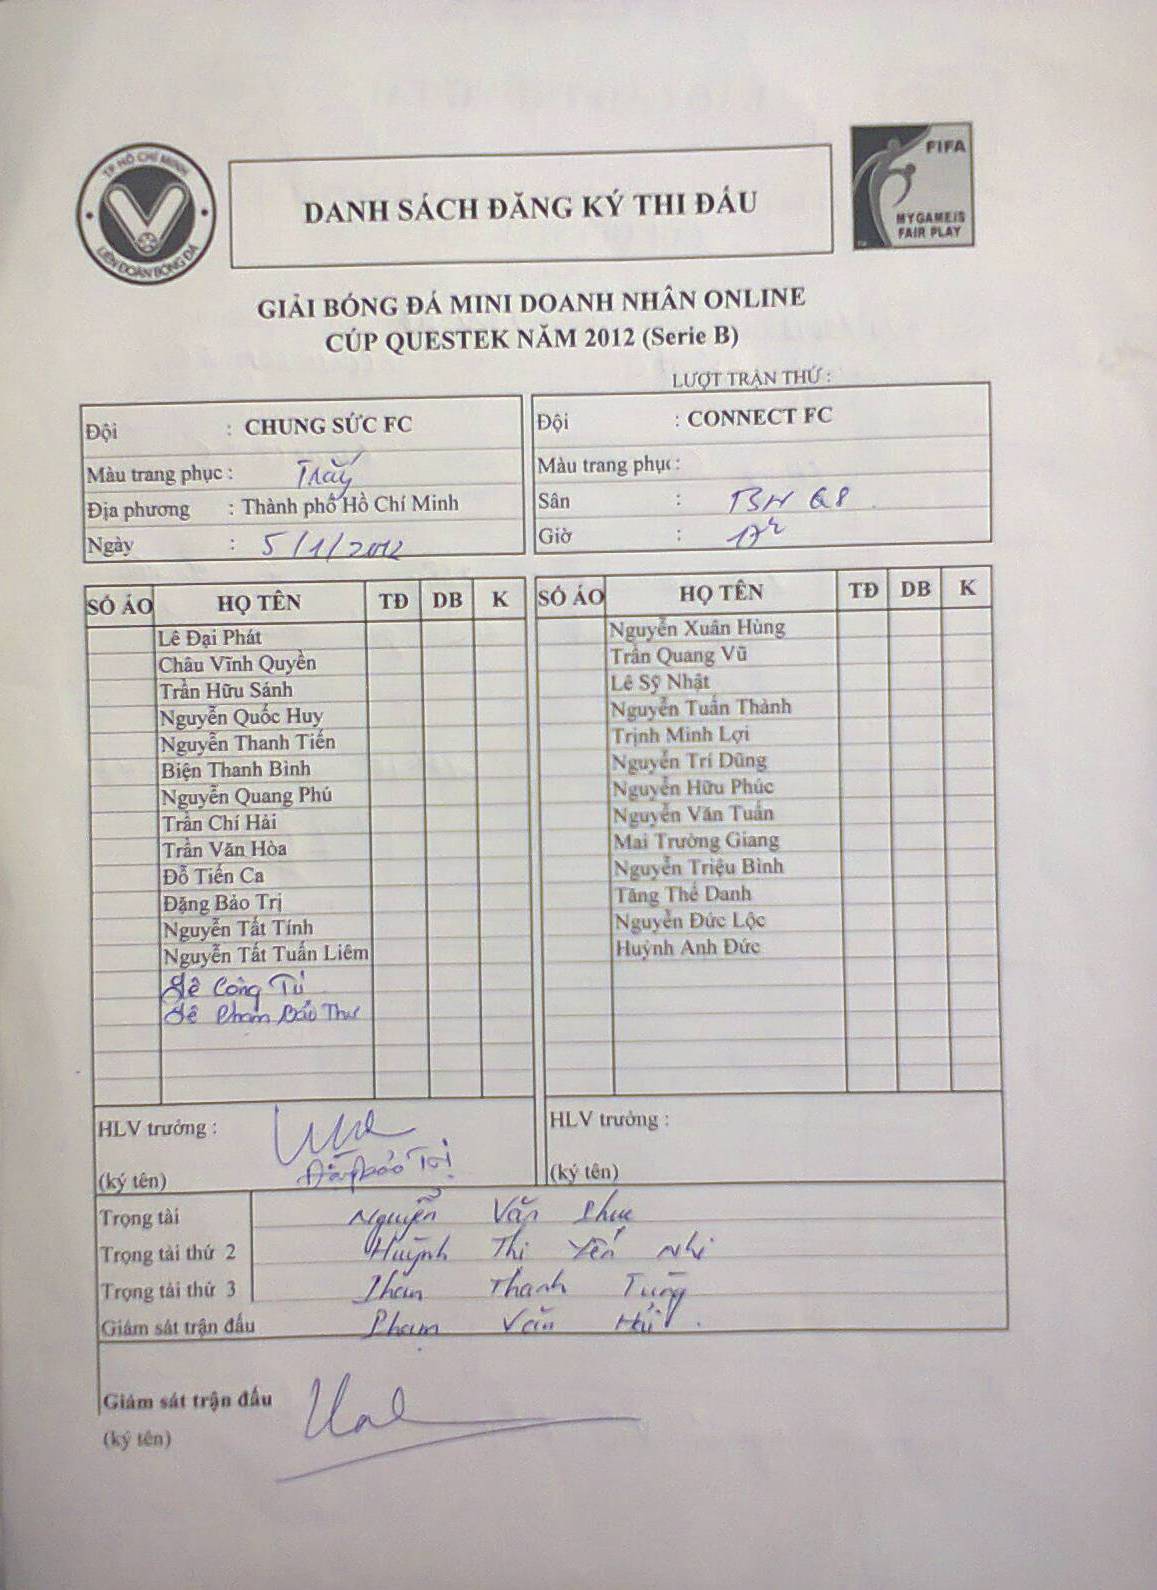 TP HỒ CHÍ MINH
LIÊN ĐOÀN BÓNG ĐÁ
DANH SÁCH ĐĂNG KÝ THI ĐẤU
FIFA
MY GAME IS
FAIR PLAY
GIẢI BÓNG ĐÁ MINI DOANH NHÂN ONLINE
CÚP QUESTEK NĂM 2012 (Serie B)
LƯỢT TRẬN THỨ :
Đội : CHUNG SỨC FC
Màu trang phục :
Địa phương : Thành phố Hồ Chí Minh
Ngày : 5/1/2012
Đội : CONNECT FC
Màu trang phục :
Sân : TBH Q8
Giờ : 17h
SỐ ÁO HỌ TÊN TĐ DB K
Lê Đại Phát
Châu Vĩnh Quyền
Trần Hữu Sánh
Nguyễn Quốc Huy
Nguyễn Thanh Tiến
Biện Thanh Bình
Nguyễn Quang Phú
Trần Chí Hải
Trần Văn Hòa
Đỗ Tiến Ca
Đặng Bảo Trị
Nguyễn Tất Tính
Nguyễn Tất Tuấn Liêm
Lê Công Tú
Lê Phạm Bảo Thư
SỐ ÁO HỌ TÊN TĐ DB K
Nguyễn Xuân Hùng
Trần Quang Vũ
Lê Sỹ Nhật
Nguyễn Tuấn Thành
Trịnh Minh Lợi
Nguyễn Trí Dũng
Nguyễn Hữu Phúc
Nguyễn Văn Tuấn
Mai Trường Giang
Nguyễn Triệu Bình
Tăng Thế Danh
Nguyễn Đức Lộc
Huỳnh Anh Đức
HLV trưởng :
Đặng Bảo Trị
(ký tên)
HLV trưởng :
(ký tên)
Trọng tài Nguyễn Văn
Trọng tài thứ 2 Huỳnh Thị Yến Nhi
Trọng tài thứ 3 Thanh Tùng
Giám sát trận đấu Phạm Văn
Giám sát trận đấu
(ký tên)